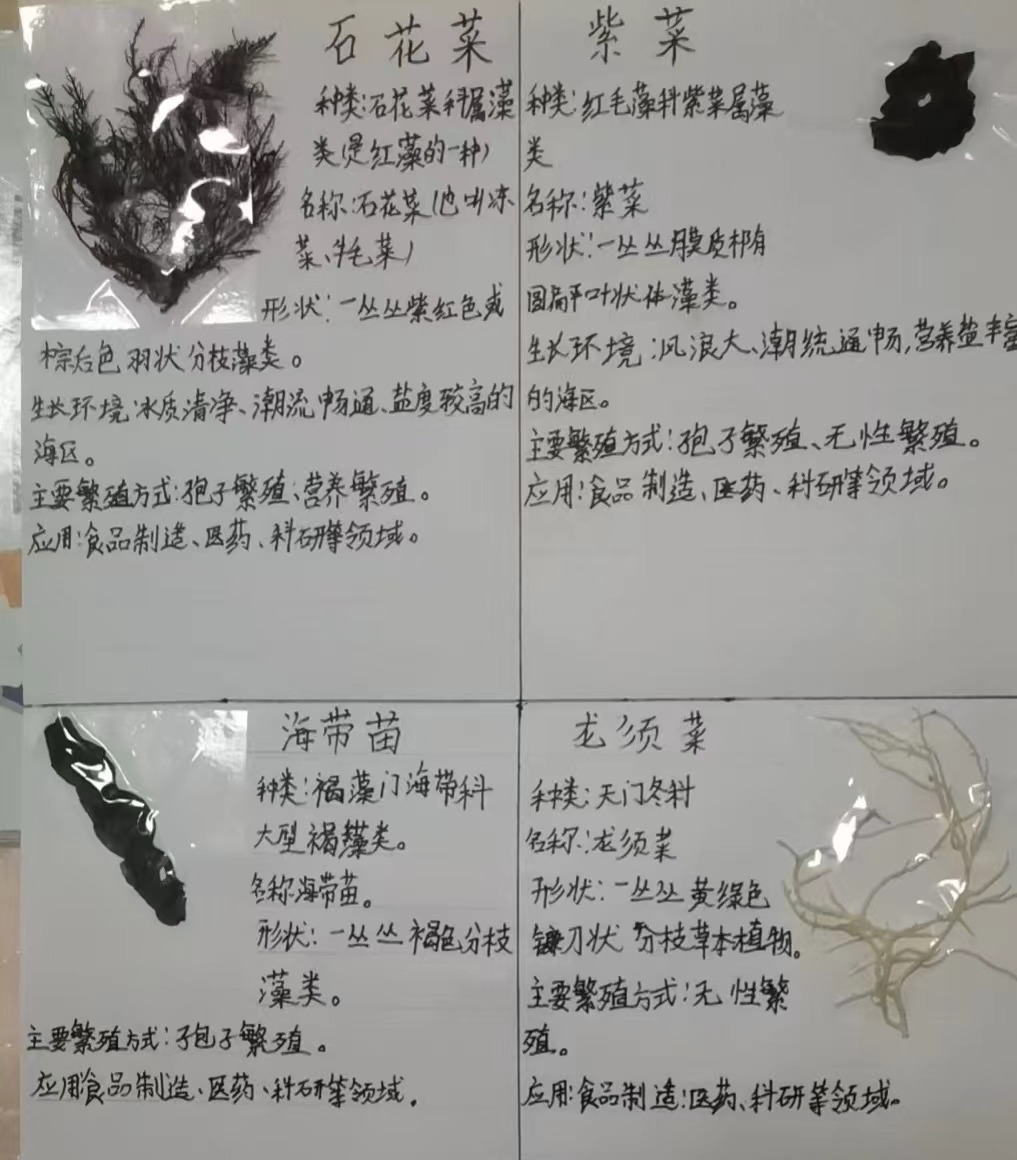 石花菜
种类:石花菜科属藻
类(是红藻的一种)
名称:石花菜(也叫冻
菜、牛毛菜)
形状:一丛丛紫红色或
棕后色羽状分枝藻类。
生长环境:水质清净、潮流畅通、盐度较高的
海区。
主要繁殖方式:孢子繁殖、营养繁殖。
应用:食品制造、医药、科研等领域。
紫菜
种类:红毛藻科紫菜属藻
类
名称:紫菜
形状:一丛丛膜质
圆扁平叶状体藻类。
生长环境:风浪大、潮统通畅,营养盐丰富
的海区。
主要繁殖方式:孢子繁殖、无性繁殖。
应用:食品制造、医药、科研等领域。
海带苗
种类:褐藻门海带科
大型褐藻类。
名称海带苗。
形状:一丛丛褐色分枝
藻类。
主要繁殖方式:孢子繁殖。
应用食品制造、医药、科研等领域.
龙须菜
种类:天门冬科
名称:龙须菜
形状:一丛丛黄绿色
镰刀状分枝草本植物。
主要繁殖方式:无性繁
殖。
应用:食品制造:医药、科研等领域。